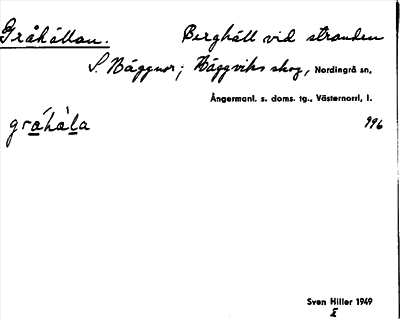 Gråhällan. Berghäll vid stranden
S. Häggnor; Häggviks skog, Nordingrå sn,
Ångermanl. s. doms. tg., Västernorrl. l.
gråhäla 996
Sven Hiller 1949
I